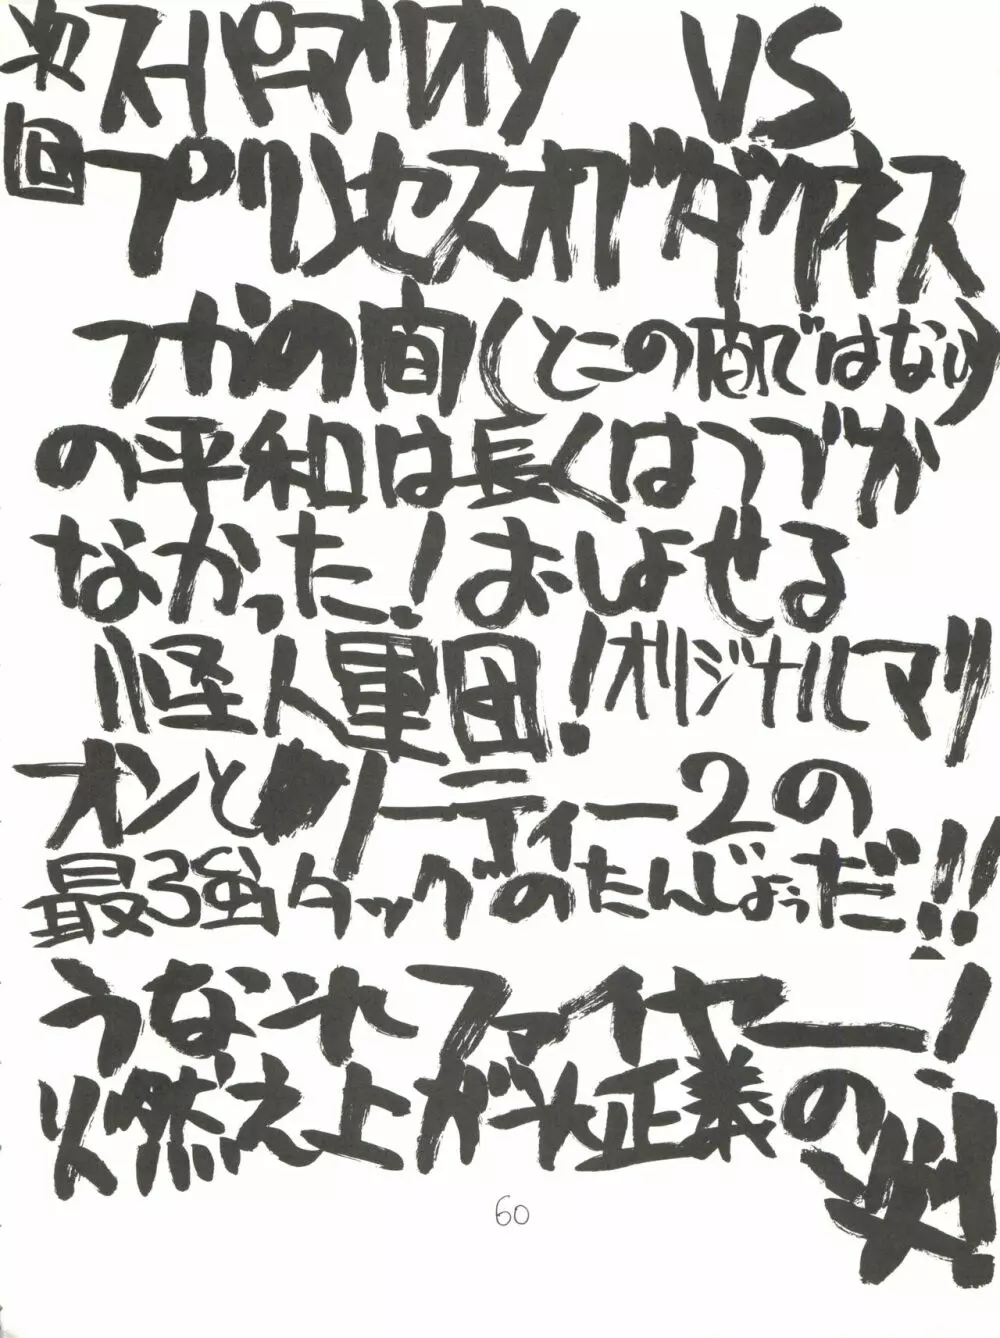 次回 スーパーマリオン VS
プリンセスオブダークネス
つかの間(とこの間ではない)
の平和は長くはつづか
なかった!おしよせる
小怪人軍団!オリジナルマリ
オンとリーディー2の
最強タッグのたんじょうだ!!
うなれファイヤー!
燃え上がれ正義の炎!
60